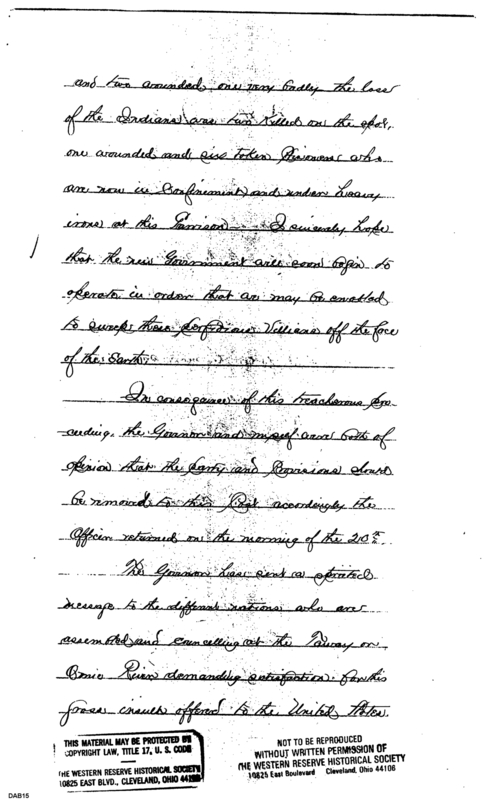 and two wounded, one very badly the loss
of the Indians are two killed on the spot,
one wounded and six taken Prisoners who
are now in Confinement and under heavy
irons at this Garrison — I sincerely hope
that the new Government will soon begin to
operate in order that we may be enabled
to sweep these perfidious Villians off the face
of the Earth.
In consequence of this treacherous pro-
ceeding, the Governor and myself were both of
opinion that the Party and Provisions should
be removed to this Post accordingly the
Officer returned on the morning of the 20th
The Governor has sent a spirited
message to the different nations who are
assembled and councelling at the Taway on
Omie River demanding satisfaction for this
gross insult offered to the United States.
THIS MATERIAL MAY BE PROTECTED BY
COPYRIGHT LAW, TITLE 17, U. S. CODE
THE WESTERN RESERVE HISTORICAL SOCIETY
10825 EAST BLVD., CLEVELAND, OHIO 44106
NOT TO BE REPRODUCED
WITHOUT WRITTEN PERMISSION OF
THE WESTERN RESERVE HISTORICAL SOCIETY
10825 East Boulevard Cleveland, Ohio 44106
DAB15